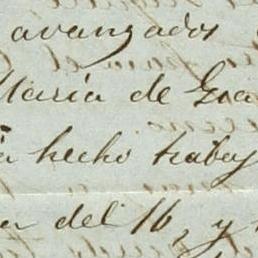 avanzados
María de Gra
hecho trabaj
del 16, y